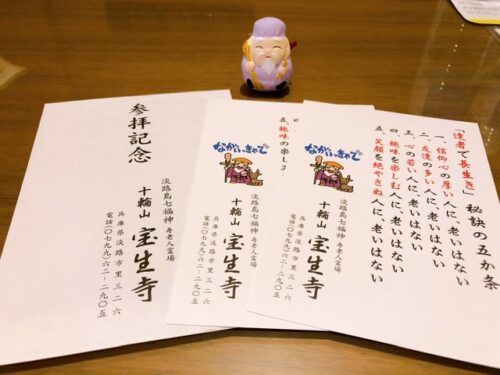 「達者で長生き」秘訣の五か条
一、信仰心の厚い人に、老いはない
二、友達の多い人に、老いはない
三、心の若い人に、老いはない
四、趣味を楽しむ人に、老いはない
五、笑顔を絶やさぬ人に、老いはない
ながいきやで
淡路島七福神 寿老人霊場
十輪山 宝生寺
兵庫県淡路市里三二六
電話(〇七九九)六二-二九〇五
五、趣味の楽し
ながいきやで
淡路島七福神 寿老人霊場
十輪山 宝生寺
兵庫県淡路市里三二六
電話(〇七九九)六二-二九〇五
参拝記念
淡路島七福神 寿老人霊場
十輪山 宝生寺
兵庫県淡路市里三二六
電話(〇七九九)六二-二九〇五